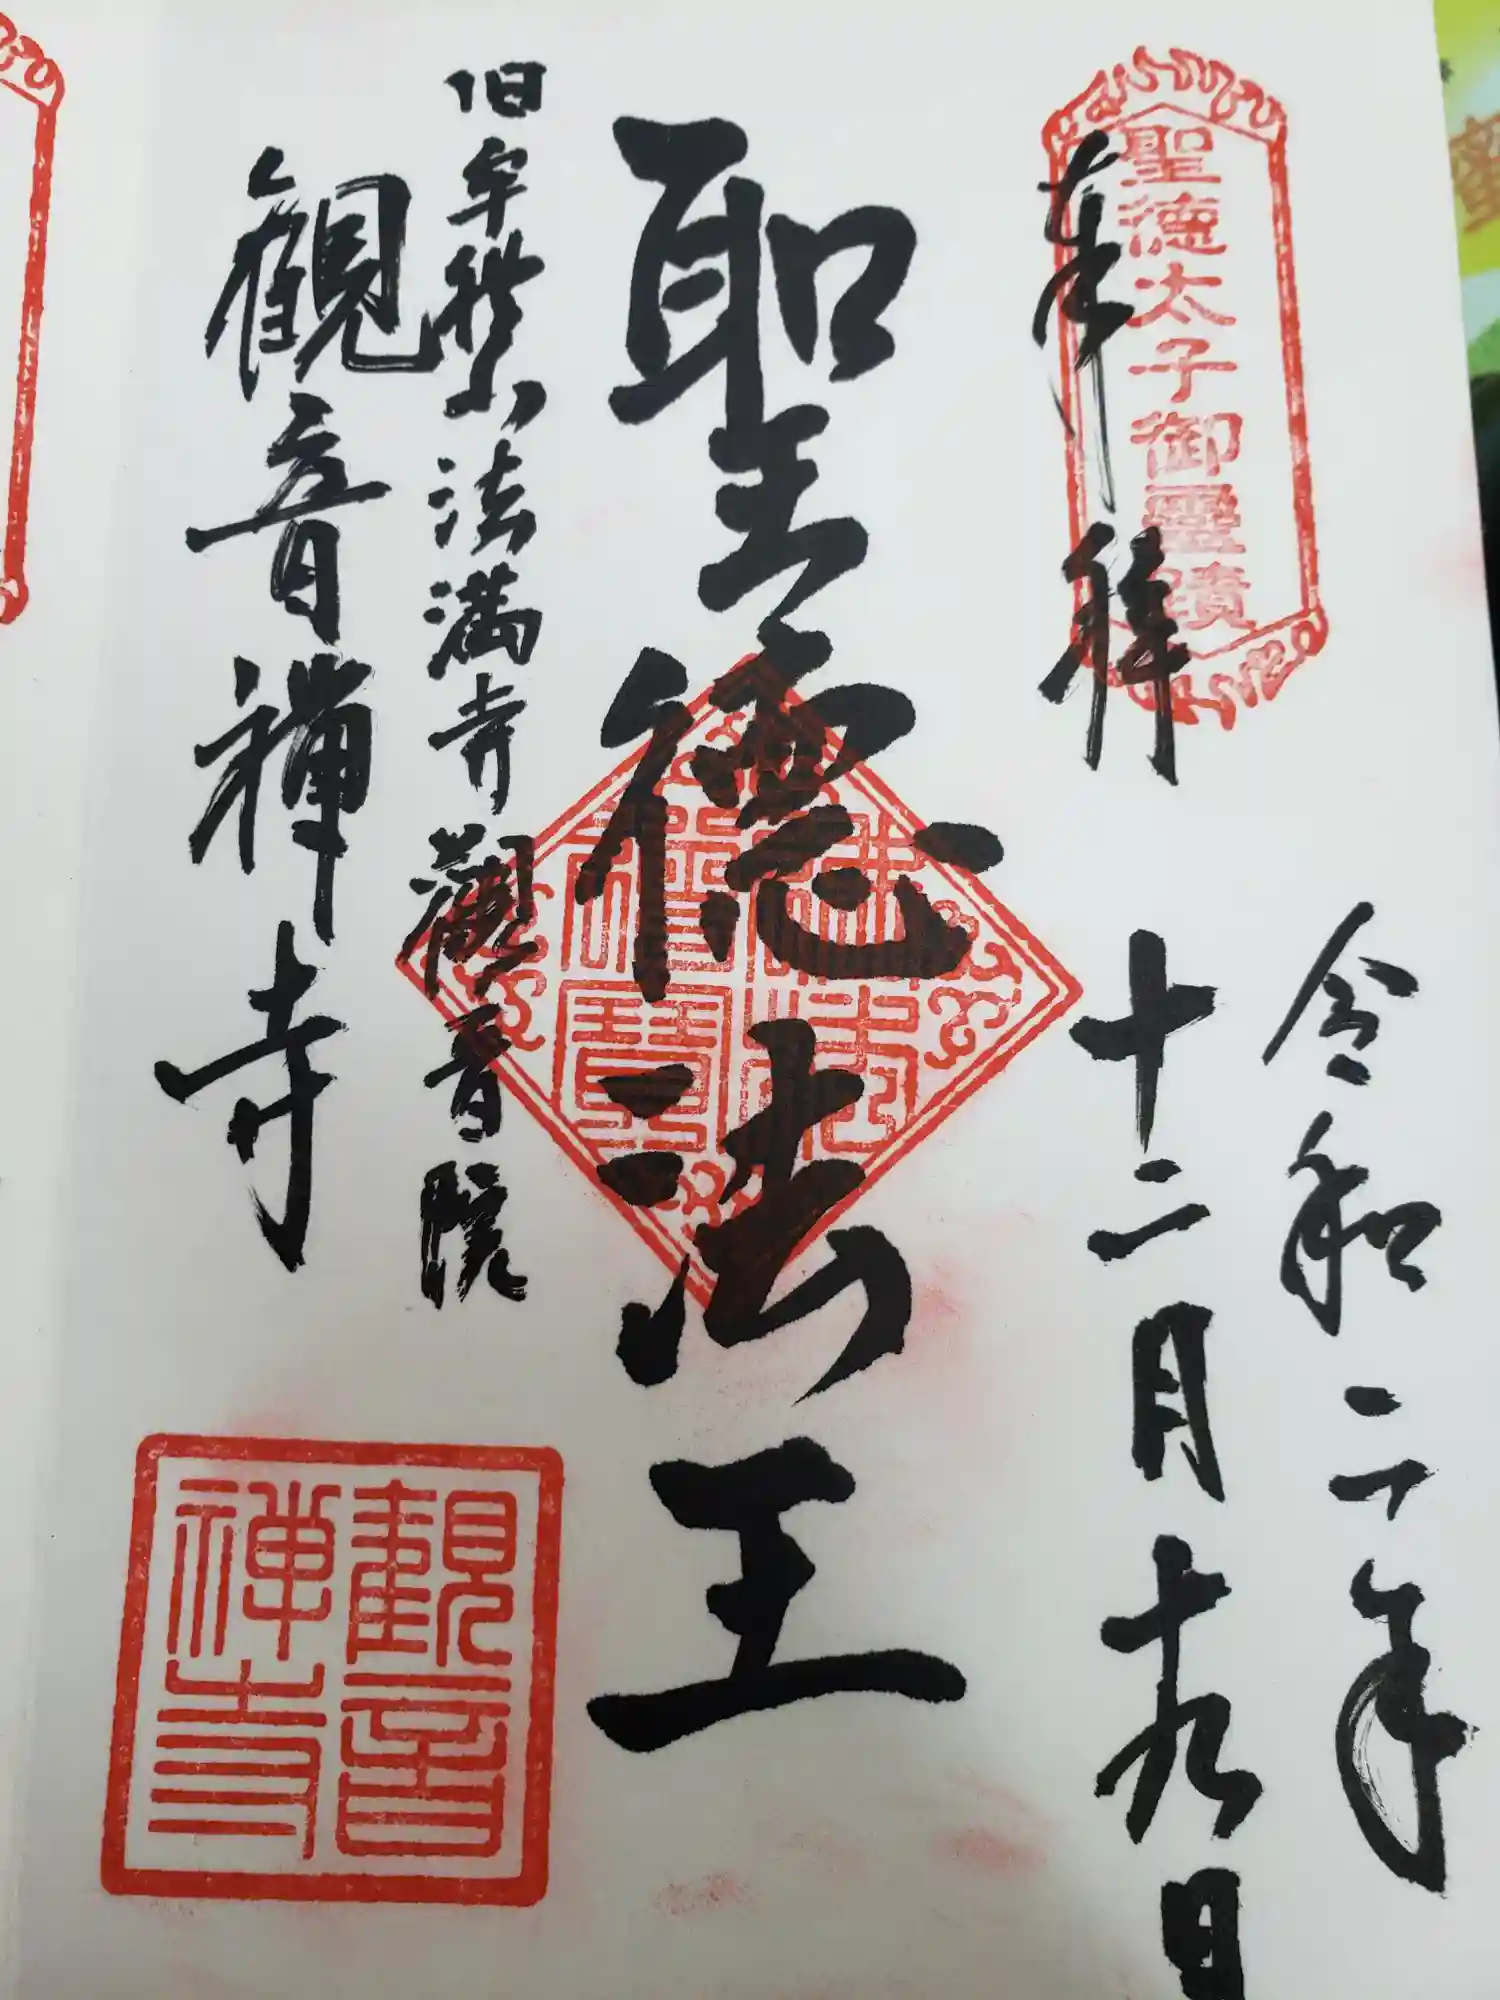 令和二年
十二月十九日
聖徳太子御霊蹟
奉拝
聖徳法王
佛法
僧寶
旧牟山法満寺観音院
観音禅寺
観音
禅寺